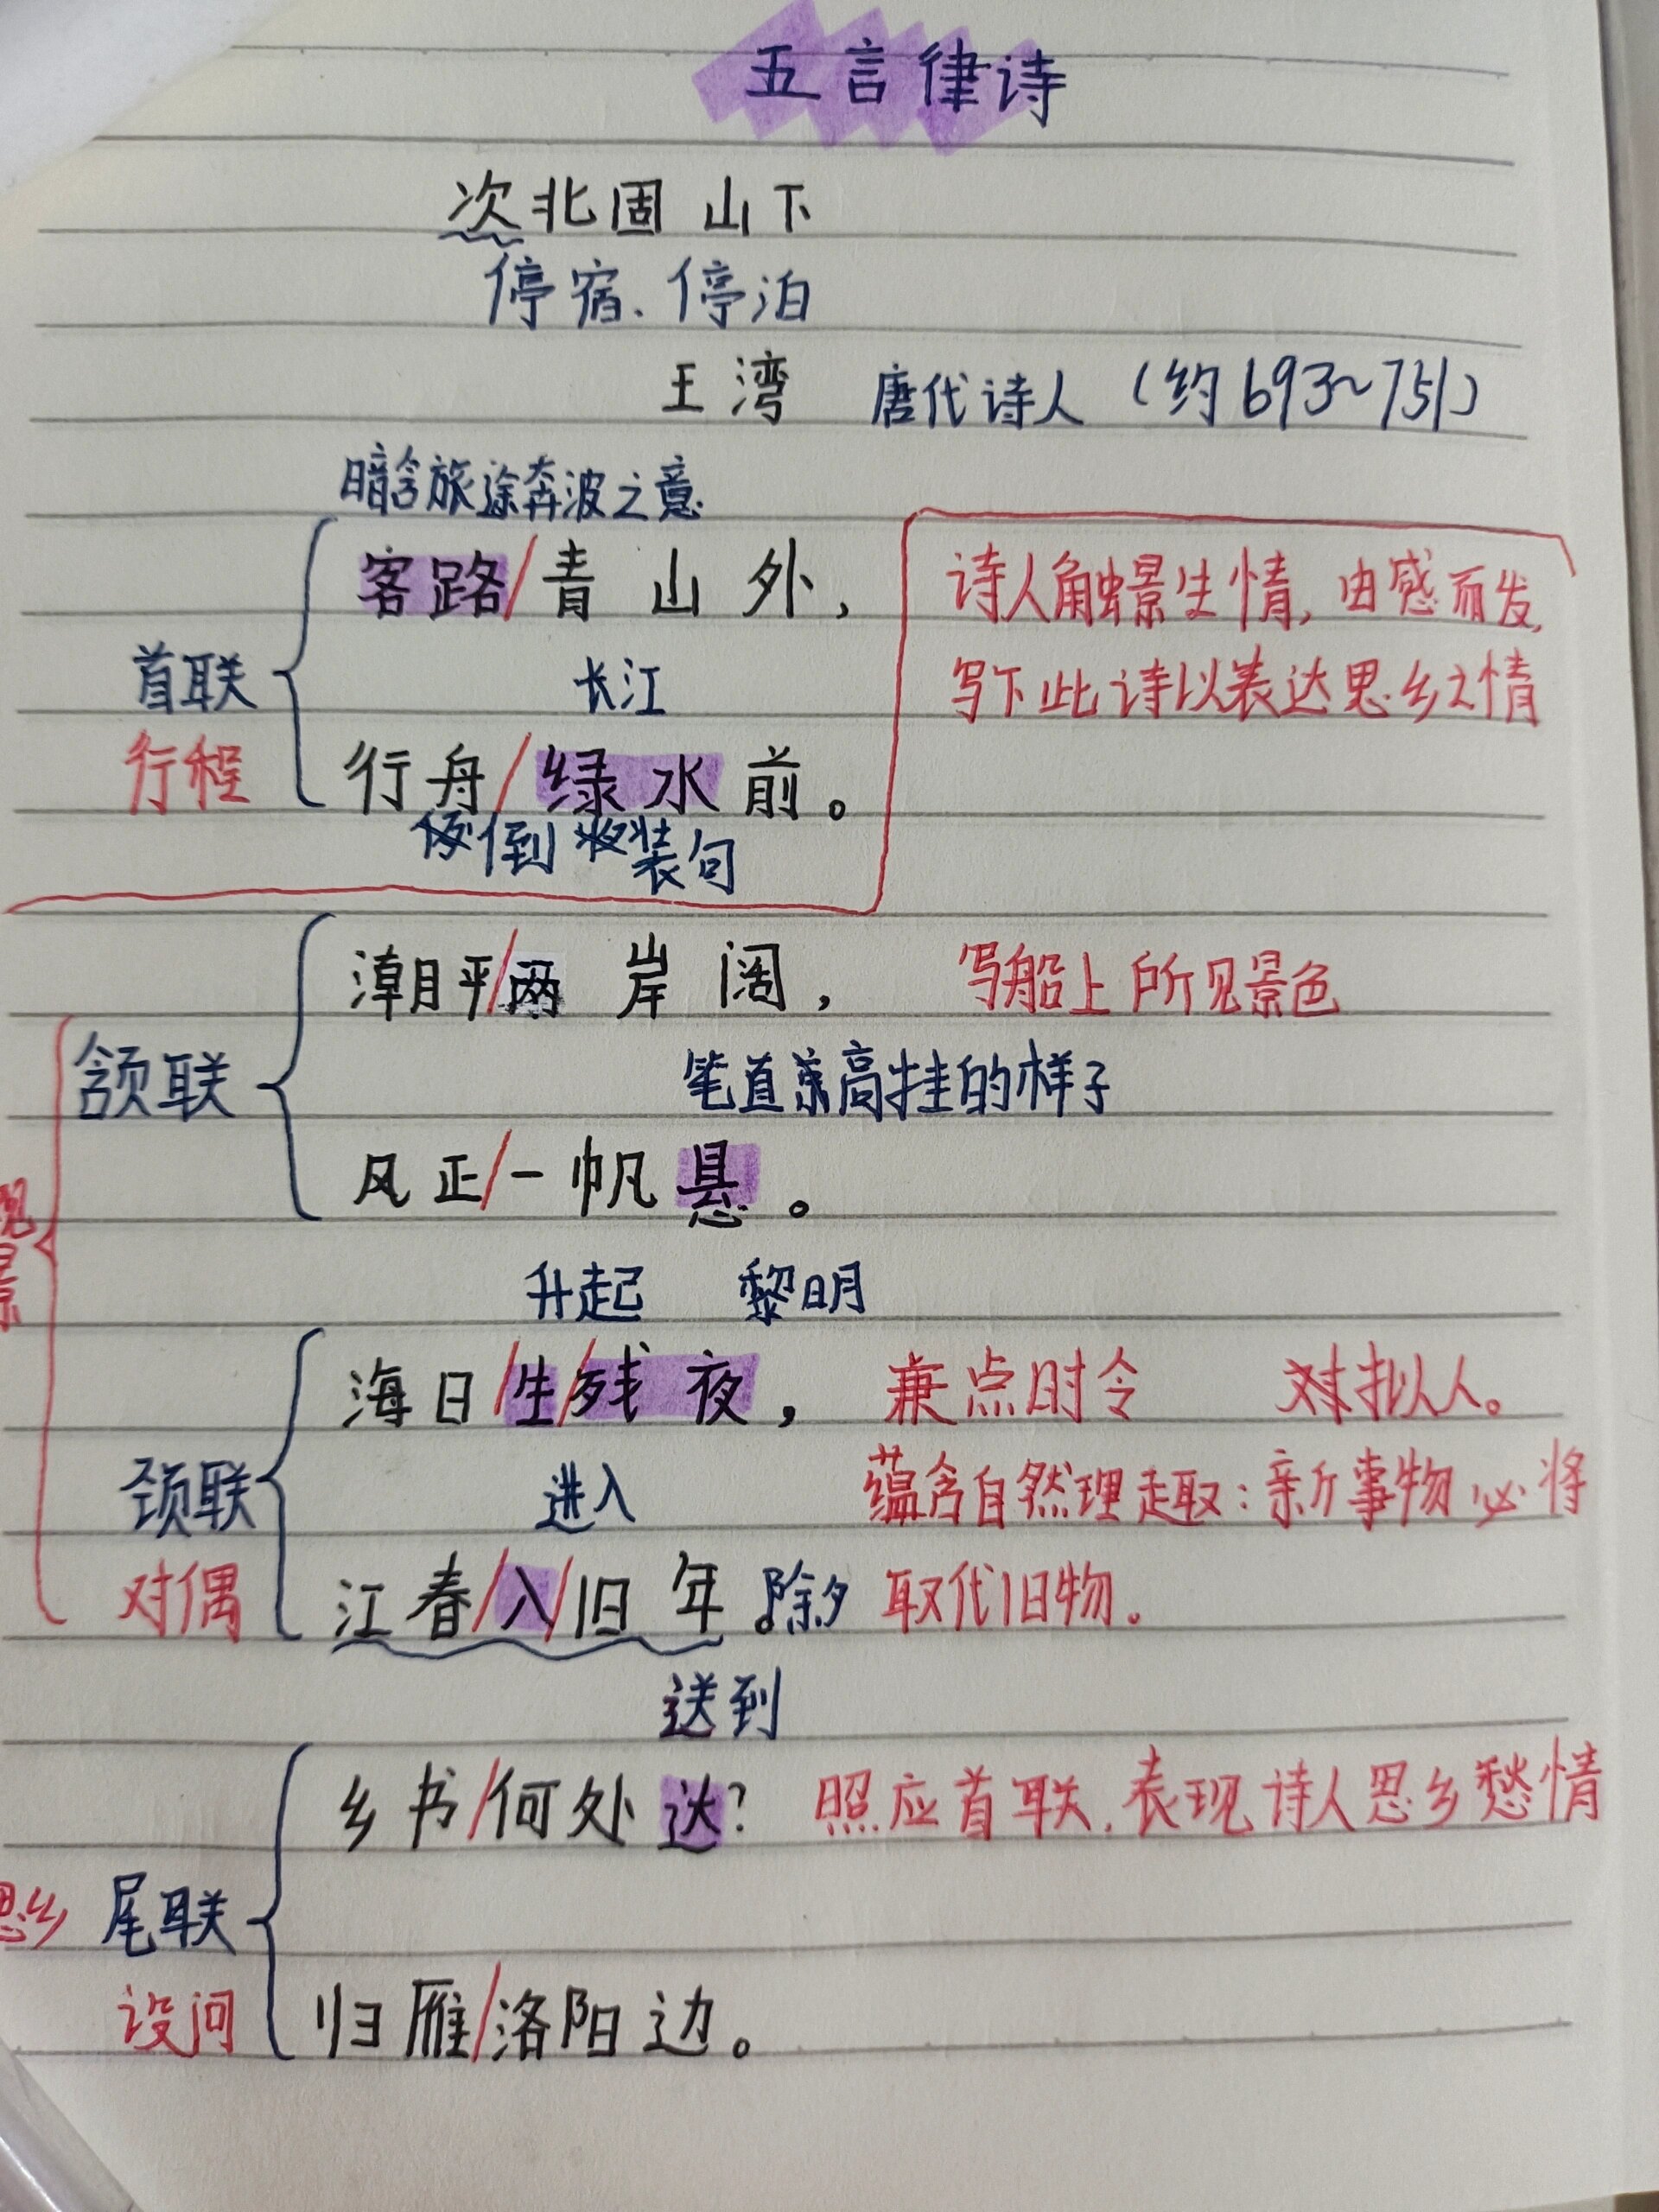 五言律诗
次北固山下
停宿、停泊
王湾 唐代诗人（约693~751）
暗含旅途奔波之意
客路/青山外，
诗人触景生情，由感而发，
首联
长江
写下此诗以表达思乡之情
行程
行舟/绿水前。
倒装句
潮平/两岸阔，
写船上所见景色
颔联
笔直高挂的样子
风正/一帆悬。
景
升起 黎明
海日/生/残夜，
兼点时令 对拟人。
颈联
进入
蕴含自然理趣：新事物必将
对偶
江春/入/旧年 除夕 取代旧物。
送到
乡书/何处达？
照应首联，表现诗人思乡愁情
思乡 尾联
设问
归雁/洛阳边。